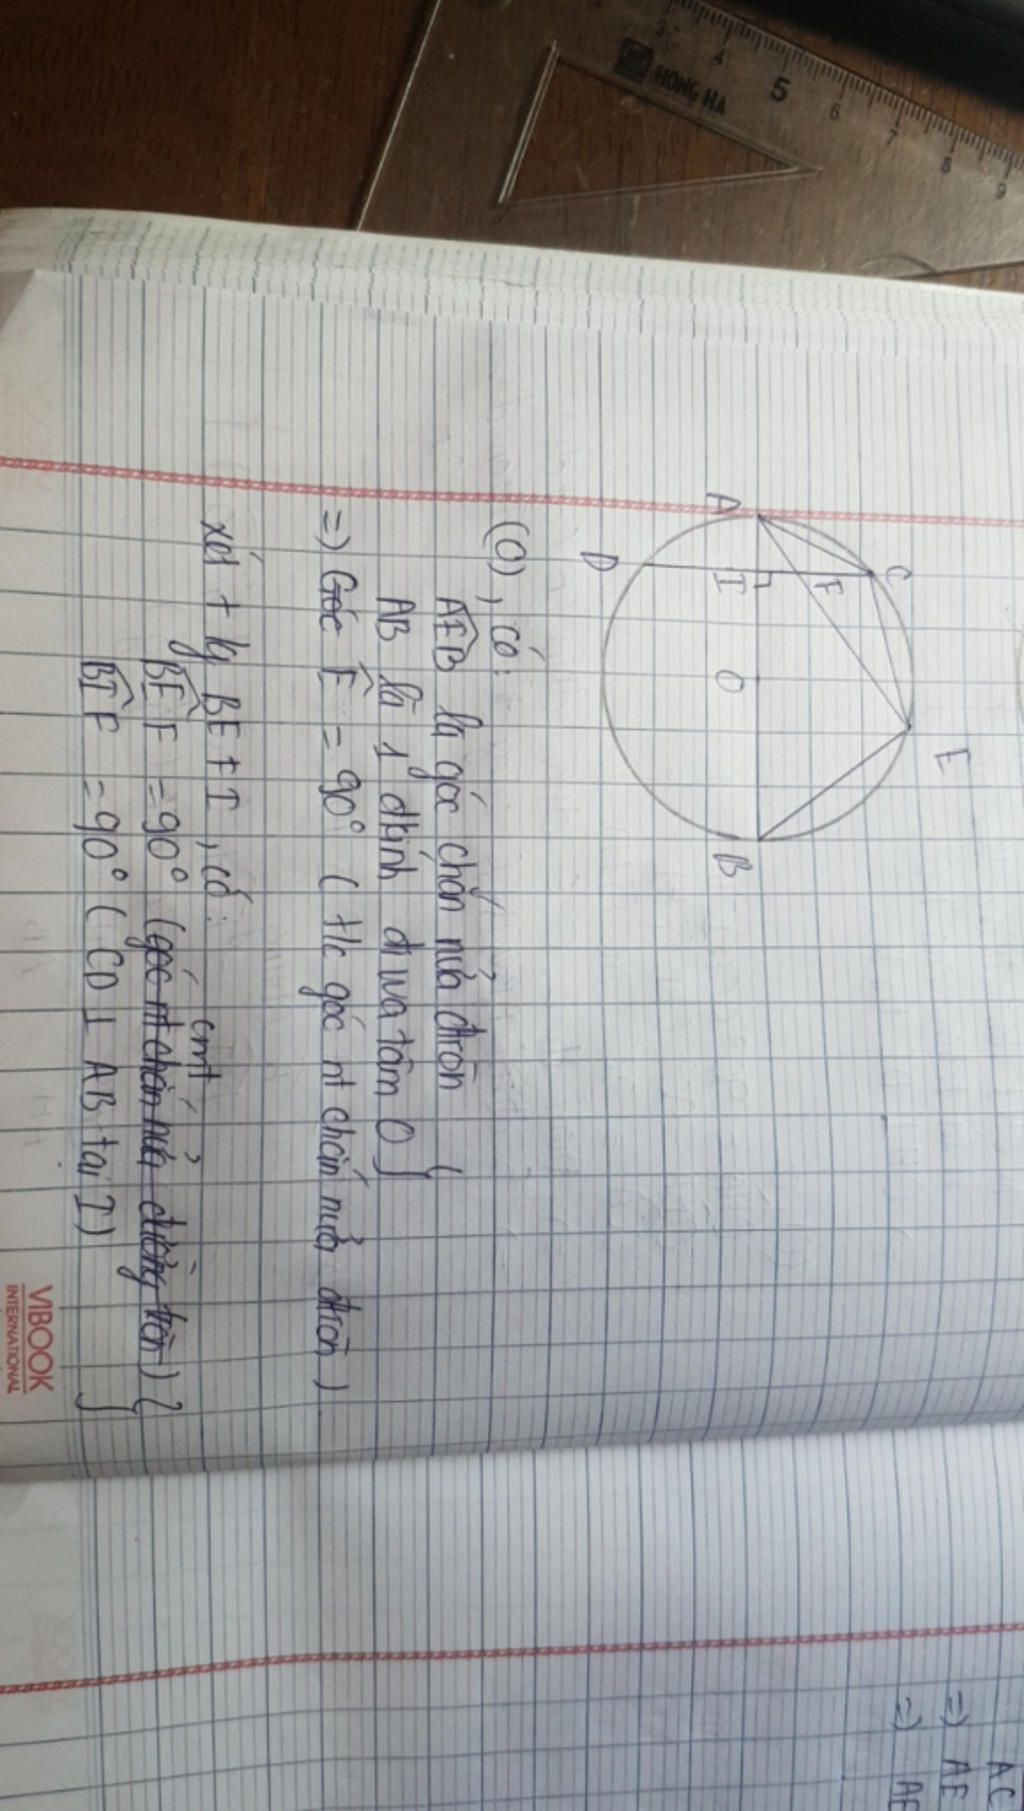 HONG HA
3 4 5 6 7 8 9
C
E
F
A I O B
D
(O), có:
AEB là góc chắn nửa đtròn
AB là 1 đkính đi wa tâm O
=) Góc E = 90° ( t/c góc nt chắn nửa đtròn )
xét tg BEFI, có:
cmt
BEF = 90° (góc nt chắn nửa đường tròn)
BIF = 90° ( CD ⊥ AB tại I )
VIBOOK
INTERNATIONAL
AC
=) AE
=)